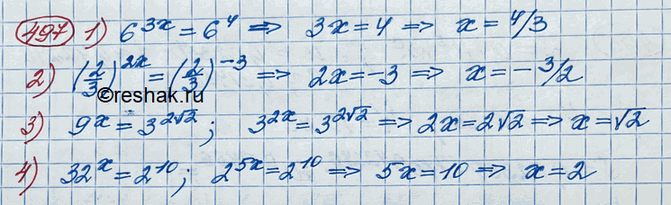 497 1) 6^{3x} = 6^4 => 3x = 4 => x = 4/3
2) (2/3)^{2x} = (2/3)^{-3} => 2x = -3 => x = -3/2
©reshak.ru
3) 9^x = 3^{2√2}; 3^{2x} = 3^{2√2} => 2x = 2√2 => x = √2
4) 32^x = 2^{10}; 2^{5x} = 2^{10} => 5x = 10 => x = 2